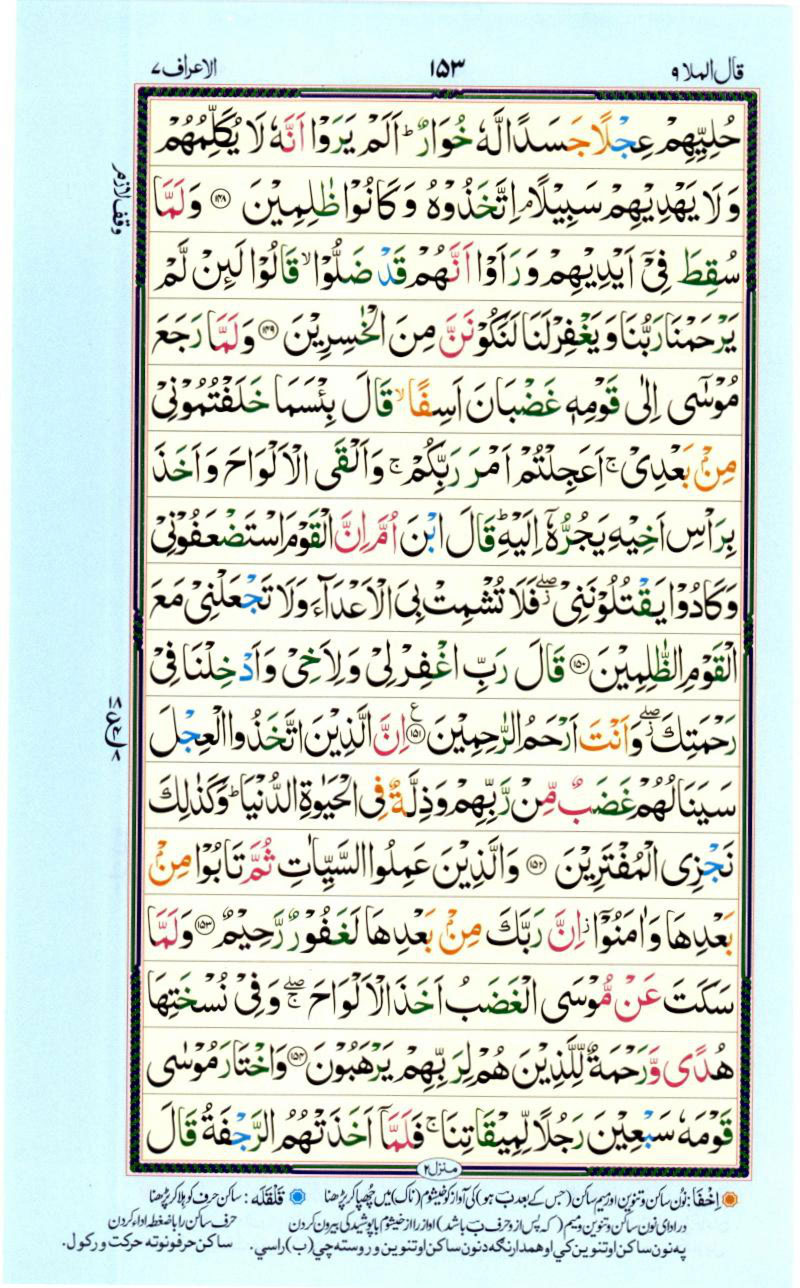 قال الملا ٩ ١٥٣ الاعراف ٧
حُلِيِّهِمْ عِجْلًا جَسَدًا لَّهٗ خُوَارٌ ؕ اَلَمْ يَرَوْا اَنَّهٗ لَا يُكَلِّمُهُمْ
وَلَا يَهْدِيْهِمْ سَبِيْلًا ۘ اِتَّخَذُوْهُ وَكَانُوْا ظٰلِمِيْنَ ﴿۱۴۸﴾ وَلَمَّا
سُقِطَ فِيْۤ اَيْدِيْهِمْ وَرَاَوْا اَنَّهُمْ قَدْ ضَلُّوْا ۙ قَالُوْا لَىِٕنْ لَّمْ
يَرْحَمْنَا رَبُّنَا وَيَغْفِرْ لَنَا لَنَكُوْنَنَّ مِنَ الْخٰسِرِيْنَ ﴿۱۴۹﴾ وَلَمَّا رَجَعَ
مُوْسٰۤى اِلٰى قَوْمِهٖ غَضْبَانَ اَسِفًا ۙ قَالَ بِئْسَمَا خَلَفْتُمُوْنِيْ
مِنْۢ بَعْدِيْ ۚ اَعَجِلْتُمْ اَمْرَ رَبِّكُمْ ۚ وَاَلْقَى الْاَلْوَاحَ وَاَخَذَ
بِرَاْسِ اَخِيْهِ يَجُرُّهٗۤ اِلَيْهِ ؕ قَالَ ابْنَ اُمَّ اِنَّ الْقَوْمَ اسْتَضْعَفُوْنِيْ
وَكَادُوْا يَقْتُلُوْنَنِيْ ۖ فَلَا تُشْمِتْ بِيَ الْاَعْدَآءَ وَلَا تَجْعَلْنِيْ مَعَ
الْقَوْمِ الظّٰلِمِيْنَ ﴿۱۵۰﴾ قَالَ رَبِّ اغْفِرْ لِيْ وَلِاَخِيْ وَاَدْخِلْنَا فِيْ
رَحْمَتِكَ ۖ وَاَنْتَ اَرْحَمُ الرّٰحِمِيْنَ ﴿۱۵۱﴾ اِنَّ الَّذِيْنَ اتَّخَذُوا الْعِجْلَ
سَيَنَالُهُمْ غَضَبٌ مِّنْ رَّبِّهِمْ وَذِلَّةٌ فِي الْحَيٰوةِ الدُّنْيَا ؕ وَكَذٰلِكَ
نَجْزِي الْمُفْتَرِيْنَ ﴿۱۵۲﴾ وَالَّذِيْنَ عَمِلُوا السَّيِّاٰتِ ثُمَّ تَابُوْا مِنْۢ
بَعْدِهَا وَاٰمَنُوْۤا ؗ اِنَّ رَبَّكَ مِنْۢ بَعْدِهَا لَغَفُوْرٌ رَّحِيْمٌ ﴿۱۵۳﴾ وَلَمَّا
سَكَتَ عَنْ مُّوْسَى الْغَضَبُ اَخَذَ الْاَلْوَاحَ ۖۚ وَفِيْ نُسْخَتِهَا
هُدًى وَّرَحْمَةٌ لِّلَّذِيْنَ هُمْ لِرَبِّهِمْ يَرْهَبُوْنَ ﴿۱۵۴﴾ وَاخْتَارَ مُوْسٰى
قَوْمَهٗ سَبْعِيْنَ رَجُلًا لِّمِيْقَاتِنَا ۚ فَلَمَّاۤ اَخَذَتْهُمُ الرَّجْفَةُ قَالَ
وقف لازم
منزل ٢
اِخْفَا: نون ساکن و تنوین اور میم ساکن (جس کے بعد ب ہو) کی آواز کو خیشوم (ناک) میں چھپا کر پڑھنا قَلْقَلَه: ساکن حرف کو ہلا کر پڑھنا
در ادای نون ساکن و تنوین و میم (که پس از و حرف ب باشد) آواز را از خیشوم با پوشیدگی بیرون کردن حرف ساکن را با ضغطه اداء کردن
په نون ساکن او تنوین کي او همدارنګه د نون ساکن او تنوین و روسته چي (ب) راسي. ساکن حرفونو ته حرکت ورکول.